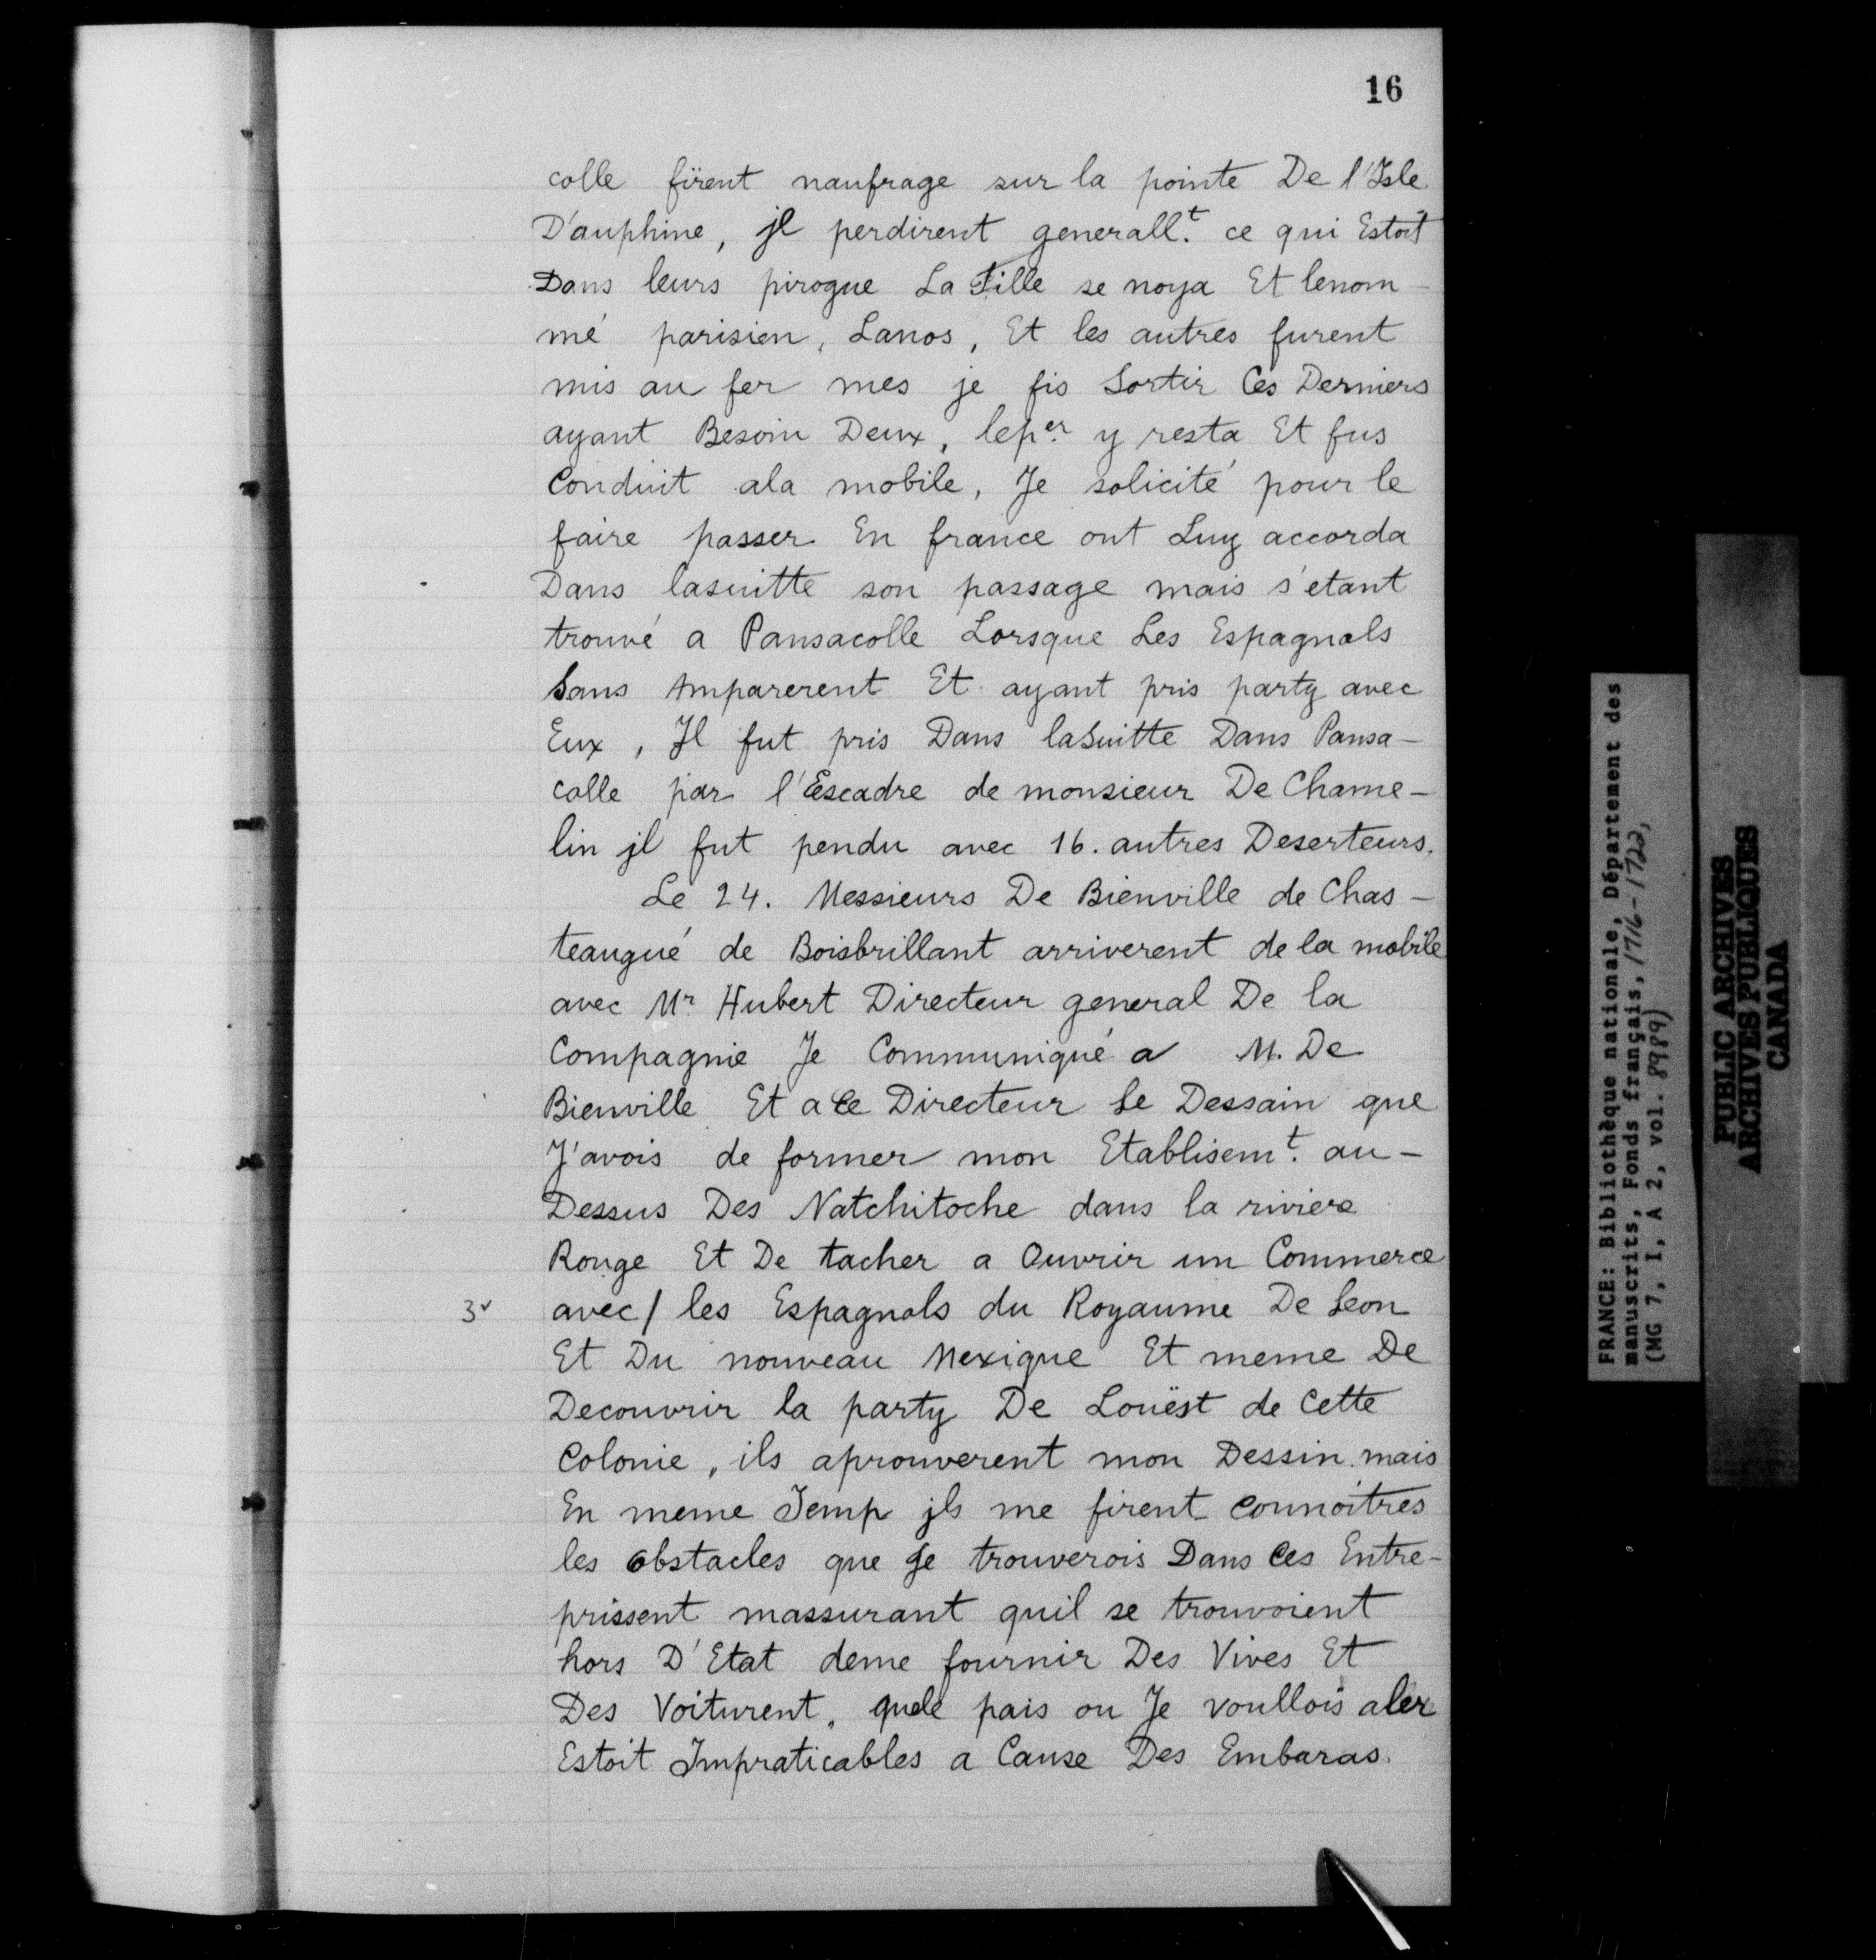 16
colle firent naufrage sur la pointe De l'Isle
D'auphine, jl perdirent generall.t ce qui Estoit
Dans leurs pirogue La fille se noya Et lenom-
mé parisien, Lanos, Et les autres furent
mis au fer mes je fis Sortir Ces Derniers
ayant Besoin Deux, leper. y resta Et fus
Conduit ala mobile, Je solicité pour le
faire passer En france ont Luy accorda
Dans lasuitte son passage mais s'etant
trouvé a Pansacolle Lorsque Les Espagnols
Sans Amparerent Et ayant pris party avec
Eux, Jl fut pris Dans laSuitte Dans Pansa-
colle par l'Escadre de monsieur De Chame-
lin jl fut pendu avec 16. autres Deserteurs.
Le 24. Messieurs De Bienville de Chas-
teaugué de Boisbrillant arriverent de la mobile
avec Mr. Hubert Directeur general De la
Compagnie Je Communiqué a M. De
Bienville Et a Ce Directeur Le Dessain que
J'avois de former mon Etablisem.t au-
Dessus Des Natchitoche dans la riviere
Rouge Et De tacher a Ouvrir un Commerce
3v avec/ les Espagnols du Royaume De Leon
Et Du nouveau Mexique Et meme De
Decouvrir la party De Louëst de Cette
Colonie, ils aprouverent mon Dessin mais
En meme Temp jls me firent connoitres
les obstacles que Je trouverois Dans Ces Entre-
prissent massurant quil se trouvoient
hors D'Etat deme fournir Des Vives Et
Des Voiturent, quele pais ou Je voullois aler
Estoit Impraticables a Cause Des Embaras
FRANCE: Bibliothèque nationale, Département des
manuscrits, Fonds français, 1716-1722,
(MG 7, I, A 2, vol. 8989)
PUBLIC ARCHIVES
ARCHIVES PUBLIQUES
CANADA